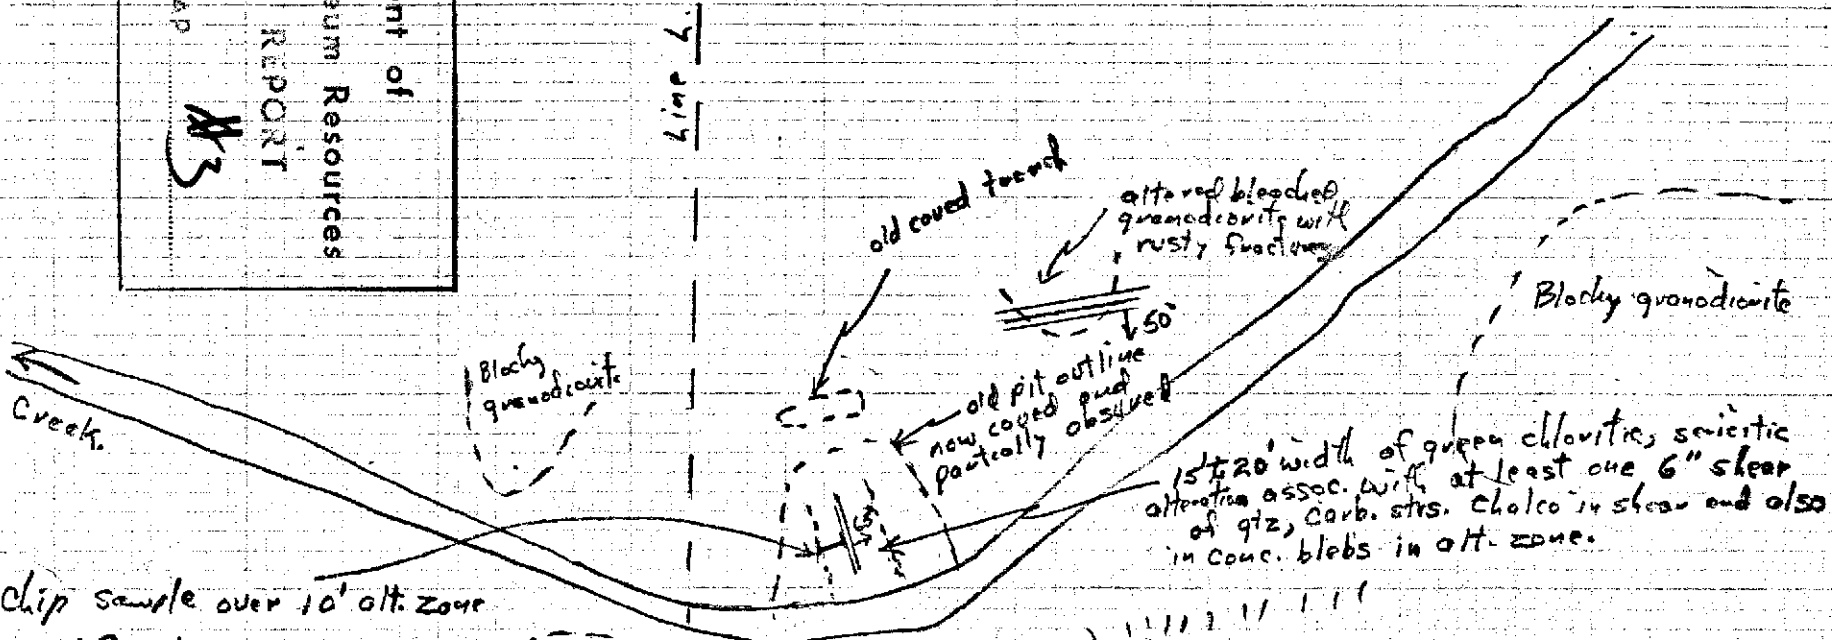 nt of
eum Resources
REPORT
#3
AP
Line 4.
old coved trench
altered bleached
granodiorite with
rusty fractures
50°
Blocky granodiorite
Blocky
granodiorite
Creek.
old pit outline
now coved and
partically observed
15' to 20' width of green chloritic, sericitic
alteration assoc. with at least one 6" shear
of qtz, carb. strs. Chalco in shear and also
in conc. blebs in alt. zone.
Chip sample over 10' alt. zone